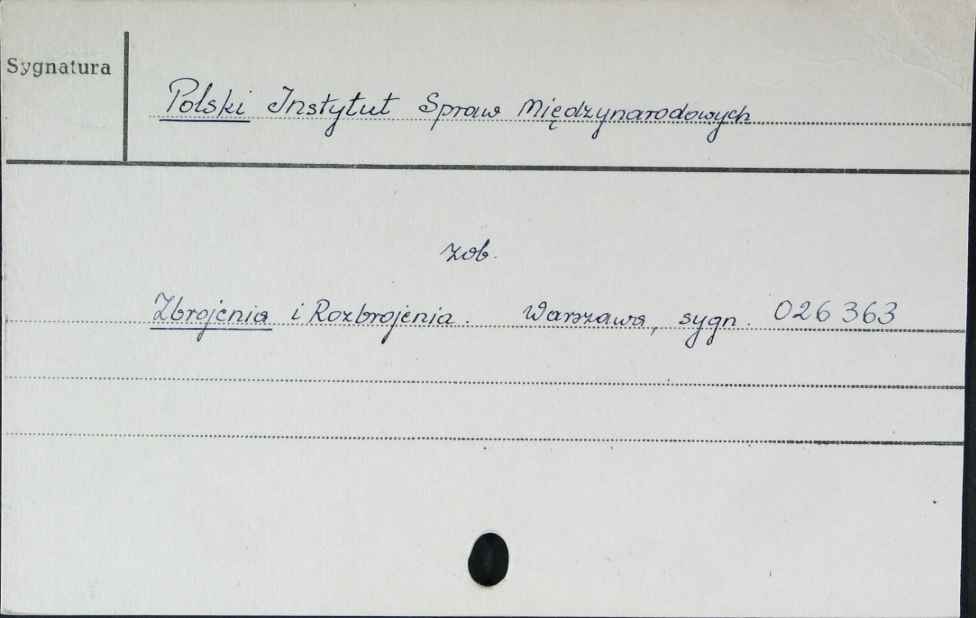 Sygnatura
Polski Instytut Spraw Międzynarodowych
zob.
Zbrojenia i Rozbrojenia. Warszawa, sygn. 026 363